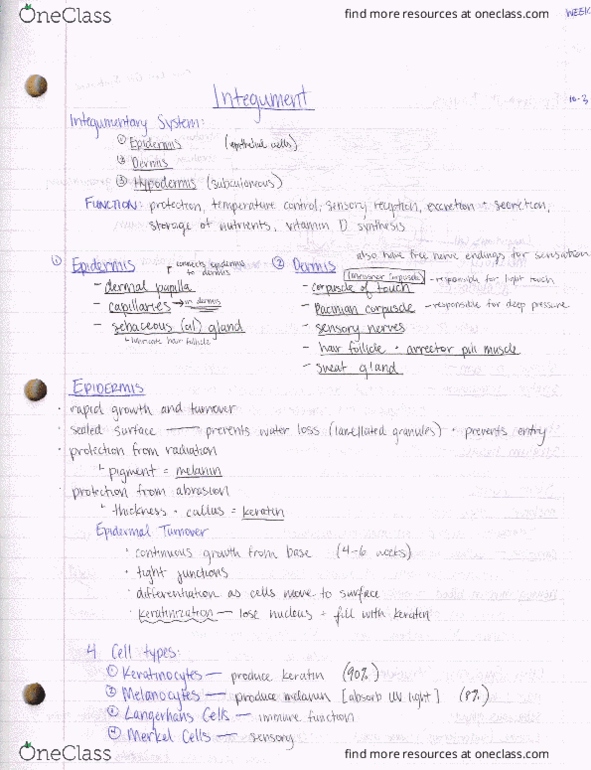 OneClass
find more resources at oneclass.com
WEEK
Integument
10-3
Integumentary System:
① Epidermis (epithelial cells)
② Dermis
③ Hypodermis (subcutaneous)
FUNCTION: protection, temperature control, sensory reception, excretion + secretion,
storage of nutrients, vitamin D synthesis
also have free nerve endings for sensation
① Epidermis connects epidermis to dermis
② Dermis
- dermal papilla
- capillaries → in dermis
- sebaceous (oil) gland
↳ lubricate hair follicle
- corpuscle of touch - responsible for light touch
- Pacinian corpuscle - responsible for deep pressure
- sensory nerves
- hair follicle + arrector pili muscle
- sweat gland
EPIDERMIS
· rapid growth and turnover
· sealed surface — prevents water loss (lamellated granules) + prevents entry
· protection from radiation
↳ pigment = melanin
· protection from abrasion
↳ thickness + callus = keratin
Epidermal Turnover
· continuous growth from base (4-6 weeks)
· tight junctions
· differentiation as cells move to surface
· keratinization — lose nucleus + fill with keratin
4 Cell types:
① Keratinocytes — produce keratin (90%)
② Melanocytes — produce melanin [absorb UV light] (8%)
③ Langerhans Cells — immune function
④ Merkel Cells — sensory
OneClass
find more resources at oneclass.com